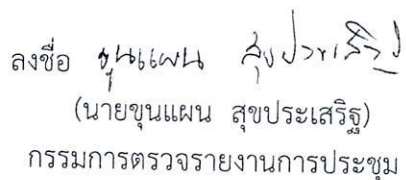 ลงชื่อ ขุนแผน สุขประเสริฐ
(นายขุนแผน สุขประเสริฐ)
กรรมการตรวจรายงานการประชุม